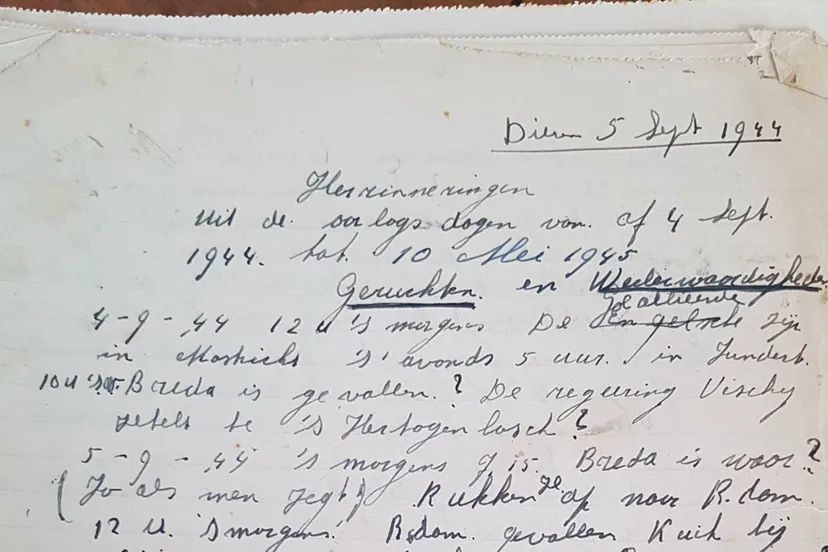 Dieren 5 Sept 1944
Herrinneringen
uit de oorlogs dagen van af 4 Sept.
1944. tot. 10 Mei 1945
Geruchten. en Wederwaardigheden
geallieerde
4-9-44 12 u 's morgens De Engelsche zijn
in Mastricht 's avonds 5 uur. in Zundert.
10 u Breda is gevallen.? De regering Vischy
zetelt te 'S Hertogenbosch?
5-9-44 's morgens 7.15. Breda is waar?
(Zo als men zegt) Rukken ze op naar R.dam.
12 u. 'S morgens. R.dam. gevallen Kuik bij